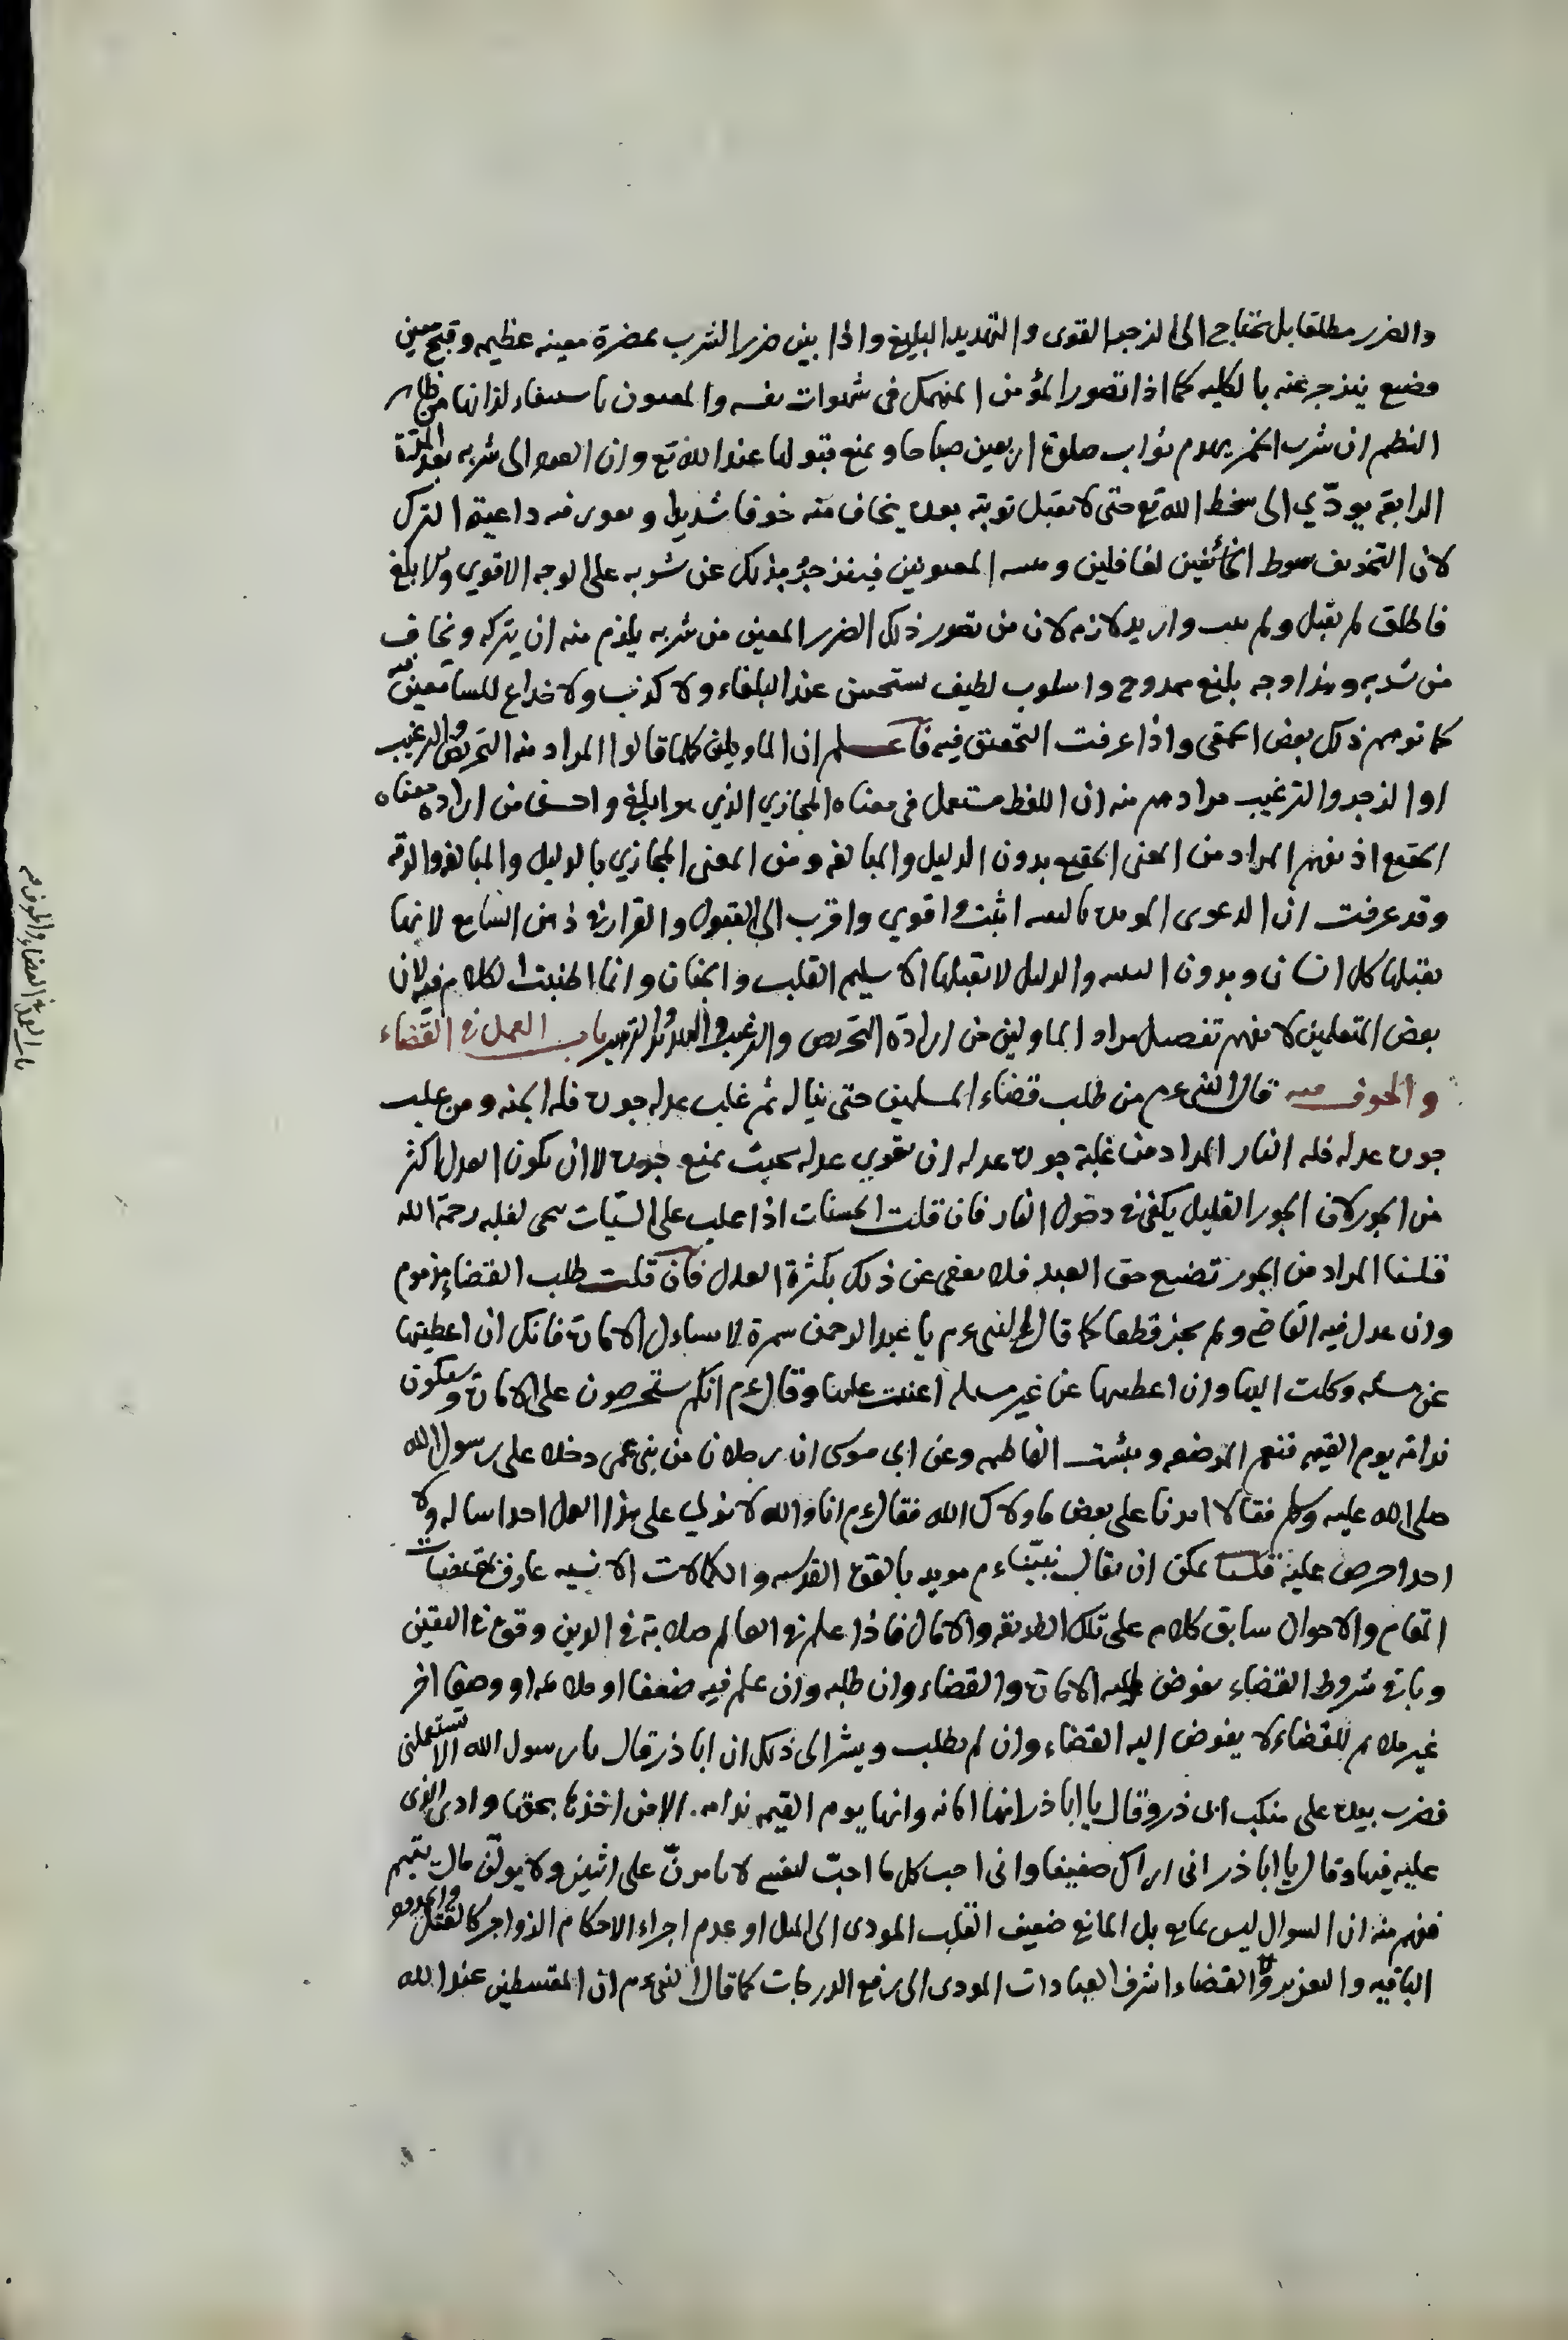 والضرر مطلقا بل تحتاج الى الزجر القوى والتهديد البليغ واذا بين ضرر الشرب بمضرة معينه عظيمه وقبح معين
وضيع ينزجر عنه بالكليه كما اذا تصور المؤمن المنهمك فى شهوات نفسه والمفتون لذاتها من ظاهر
النظم ان شرب الخمر يهدم ثواب صلوة اربعين صباحا ويمنع قبولها عند الله تع وان العود الى شربه بعد المرتبة
الرابعة يودّي الى سخط الله تع حتى لا تقبل توبته بعده يخاف منه خوفا شديدا و يقوى فيه داعية الترك
لان التخويف سوط الخائفين الغافلين و المفتونين فينزجر بذلك عن شربه على الوجه الاقوي والابلغ
فاطلق لم تقبل ولم يتب واريد لازمه لان من تصور ذلك الضرر المعين من شربه يلزم منه ان يتركه ويخاف
من شربه وهذا وجه بليغ ممدوح واسلوب لطيف يستحسن عند البلغاء ولا كذب ولا خداع للسامعين
كما توهم ذلك بعض الحمقى واذا عرفت التحقيق فيه فاعلم ان الماولين كلما قالوا المراد منه التحريض والترغيب
او الزجر والترغيب مرادهم منه ان اللفظ مستعمل فى معناه المجازي الذي هو ابلغ واحسن من ارادة معناه
الحقيقي اذ يفهم المراد من المعنى الحقيقي بدون الدليل والمبالغه ومن المعنى المجازي بالدليل والمبالغة والدقه
وقد عرفت ان الدعوى المويده بالبينه اثبت واقوي واقرب الى القبول والقرار فى ذهن السامع لانها
يقبلها كل انسان وبدون البينه والدليل لا يقبلها الا سليم القلب والجنان وانما اطنبت الكلام فيه لان
بعض المتعلمين لا يفهم تفصيل مراد الماولين من ارادة التحريص والترغيب والتهديد والترهيب باب العمل فى القضاء
والخوف منه قال النبى ءم من طلب قضاء المسلمين حتى يناله ثم غلب عدله جوره فله الجنه ومن غلب
جوره عدله فله النار المراد من غلبة جوره عدله ان يقوي عدله بحيث يمنع جوره لا ان يكون العدل اكثر
من الجور لان الجور القليل يكفى فى دخول النار فان قلت الحسنات اذا غلب على السيّات يمحى لغلبه رحمة الله
قلنا المراد من الجور تضيع حق العبد فلا يعفى عن ذلك بكثرة العدل فان قلت طلب القضاء مذموم
وان عدل فيه القاضى ولم يجز قطعا كما قال النبى ءم يا عبد الرحمن سمرة لا تسأل الامارة فانك ان اعطيتها
عن مسئله وكلت اليها وان اعطيتها عن غير مسئله اعنت عليها وقال ءم انكم ستحرصون على الامارة وستكون
ندامة يوم القيمه فنعم المرضعه وبئست الفاطمه وعن ابى موسى ان رجلان من بنى عمى دخلا على رسول الله
صلى الله عليه وسلم فقالا امرنا على بعض ما ولاك الله فقال ءم انا والله لا نولي على هذا العمل احدا ساله ولا
احدا حرص عليه قلنا يمكن ان يقال نبيّنا ءم مويد بالقوة القدسيه والكمالات الانسيه عارف بمقتضيات
المقام والاحوال سابق كلامه على تلك الطريقه والامال فاذا علم فى العالم صلابة فى الدين وقوة فى اليقين
وباقى شروط القضاء يفوض اليه الامارة والقضاء وان طلبه وان علم فيه ضعفا او ملامة او وصفا اخر
غير ملايم للقضاء لا يفوض اليه القضاء وان لم يطلب ويشر الى ذلك ان ابا ذر قال يا رسول الله الا تستعملنى
فضرب بيده على منكب ابى ذر وقال يا ابا ذر انها امانه وانها يوم القيمه ندامه الا من اخذها بحقها وادى الذى
عليه فيها وقال يا ابا ذر انى اراك ضعيفا وانى احب لك ما احبّ لنفسى لا تامرنّ على اثنين ولا تولّين مال يتيم
ففهم منه ان السوال ليس بمانع بل المانع ضعيف القلب المودى الى الميل او عدم اجراء الاحكام الزواجر كالقتل والحدود
الباقيه والتعزير والقضاء اشرف العبادات المودى الى رفع الدرجات كما قال النبى ءم ان المقسطين عند الله
باب العمل فى القضاء والخوف منه